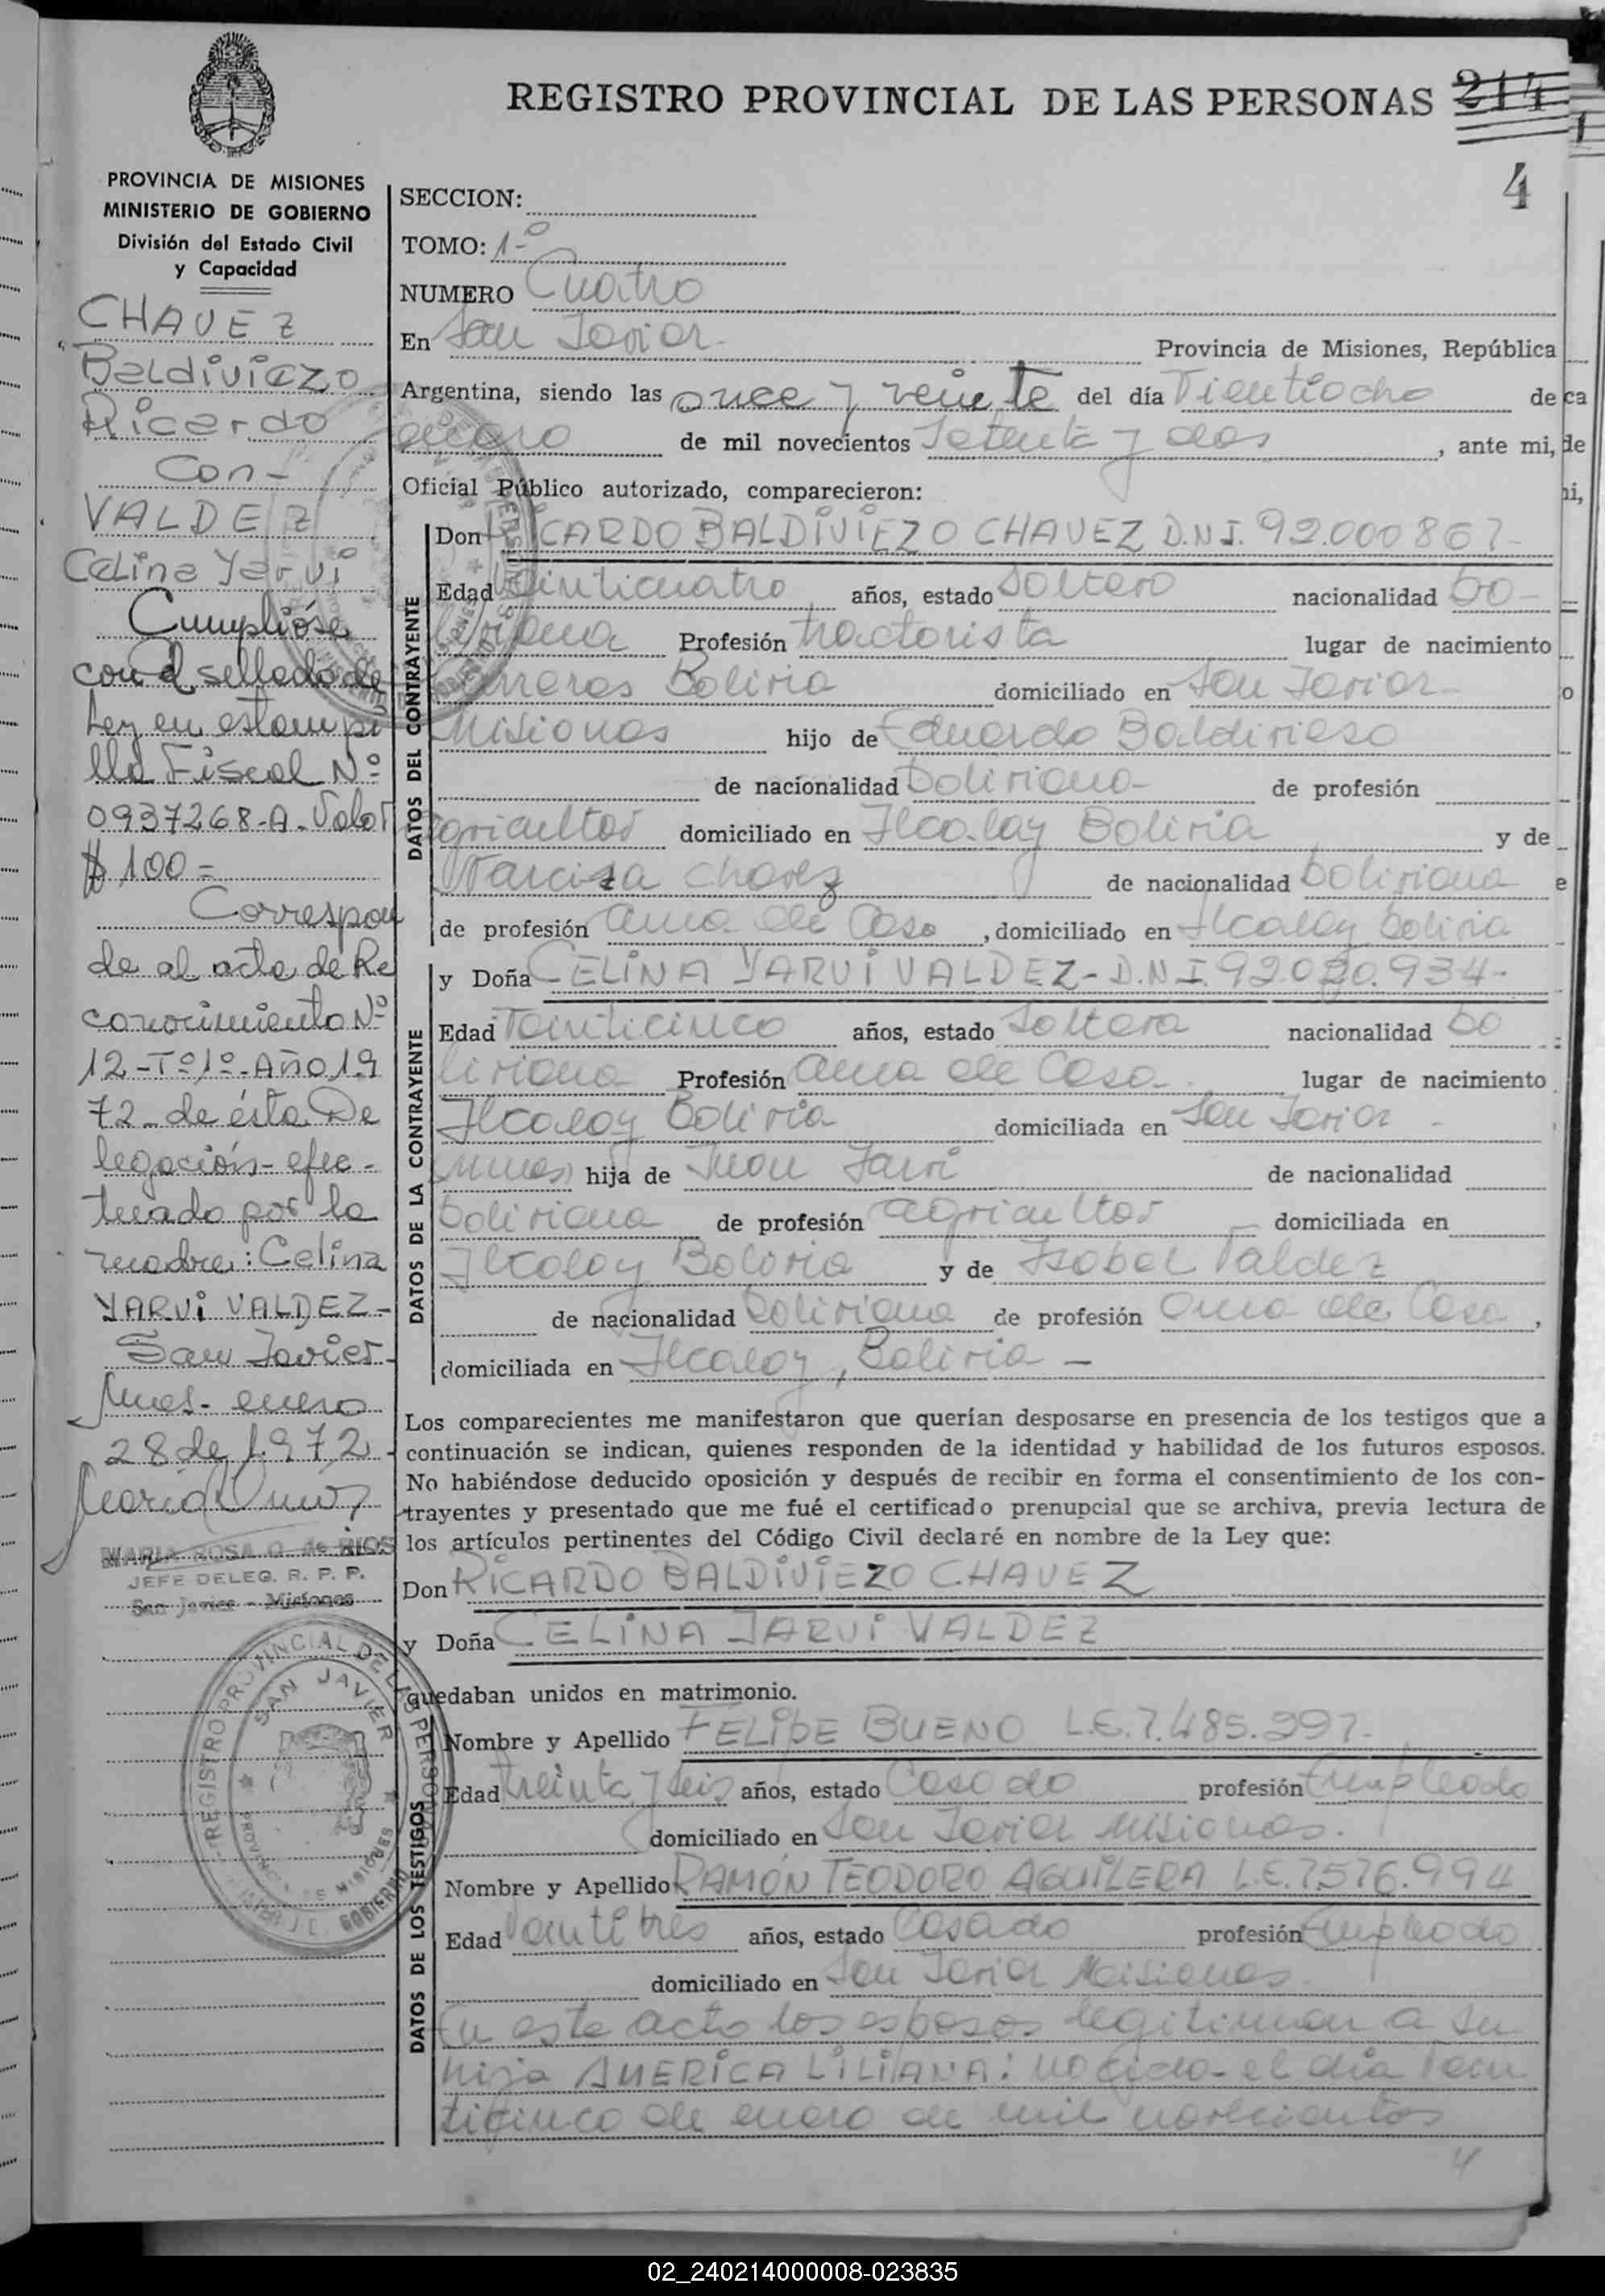 REGISTRO PROVINCIAL DE LAS PERSONAS 214
4
PROVINCIA DE MISIONES
MINISTERIO DE GOBIERNO
División del Estado Civil
y Capacidad
CHAVEZ
Baldiviezo
Ricardo
Con-
VALDEZ
Celina Yarvi
Cumplióse
con el sellado de
Ley en estampi
lla Fiscal Nº
0937268-A. Valor
$ 100=
Correspon
de al acta de Re
conocimiento Nº
12-Tº1º-Año 19
72-de ésta De
legación-efec-
tuado por la
madre: Celina
YARVI VALDEZ-
San Javier-
Mnes- enero
28 de 1.972-
MARIA ROSA O. de RIOS
JEFE DELEG. R. P. P.
San Javier - Misiones
REGISTRO PROVINCIAL DE LAS PERSONAS
SAN JAVIER
PROVINCIA DE MISIONES
GOBIERNO
SECCION:
TOMO: 1-º
NUMERO Cuatro
En San Javier- Provincia de Misiones, República
Argentina, siendo las once y veinte del día Veintiocho de
enero de mil novecientos Setenta y dos, ante mi,
Oficial Público autorizado, comparecieron:
DATOS DEL CONTRAYENTE
Don RICARDO BALDIVIEZO CHAVEZ D.N.I. 92.000867-
Edad Veinticuatro años, estado Soltero nacionalidad bo-
liviana Profesión tractorista lugar de nacimiento
Bolivia domiciliado en San Javier-
Misiones hijo de Eduardo Baldivieso
de nacionalidad boliviana- de profesión
agricultor domiciliado en Ilcalay Bolivia y de
Narcisa Chavez de nacionalidad boliviana
de profesión ama de Casa, domiciliado en Ilcalay Bolivia
DATOS DE LA CONTRAYENTE
y Doña CELINA YARVI VALDEZ-D.N.I. 92.020.934-
Edad Veinticinco años, estado Soltera nacionalidad bo
liviana Profesión ama de Casa- lugar de nacimiento
Ilcalay Bolivia domiciliada en San Javier -
Mnes) hija de Juan Jarvi de nacionalidad
boliviana de profesión agricultor domiciliada en
Ilcalay Bolivia y de Isabel Valdez
de nacionalidad boliviana de profesión ama de Casa,
domiciliada en Ilcalay, Bolivia -
Los comparecientes me manifestaron que querían desposarse en presencia de los testigos que a
continuación se indican, quienes responden de la identidad y habilidad de los futuros esposos.
No habiéndose deducido oposición y después de recibir en forma el consentimiento de los con-
trayentes y presentado que me fué el certificado prenupcial que se archiva, previa lectura de
los artículos pertinentes del Código Civil declaré en nombre de la Ley que:
Don RICARDO BALDIVIEZO CHAVEZ
y Doña CELINA JARVI VALDEZ
quedaban unidos en matrimonio.
DATOS DE LOS TESTIGOS
Nombre y Apellido FELIPE BUENO L.E. 7.485.997-
Edad treinta y seis años, estado Casado profesión Empleado
domiciliado en San Javier Misiones.
Nombre y Apellido RAMÓN TEODORO AGUILERA L.E. 7.576.994
Edad Veintitres años, estado Casado profesión Empleado
domiciliado en San Javier Misiones.
En este acto los esposos legitiman a su
hija AMERICA LILIANA: nacida-el día Vein
ticinco de enero de mil novecientos
4
02_240214000008-023835